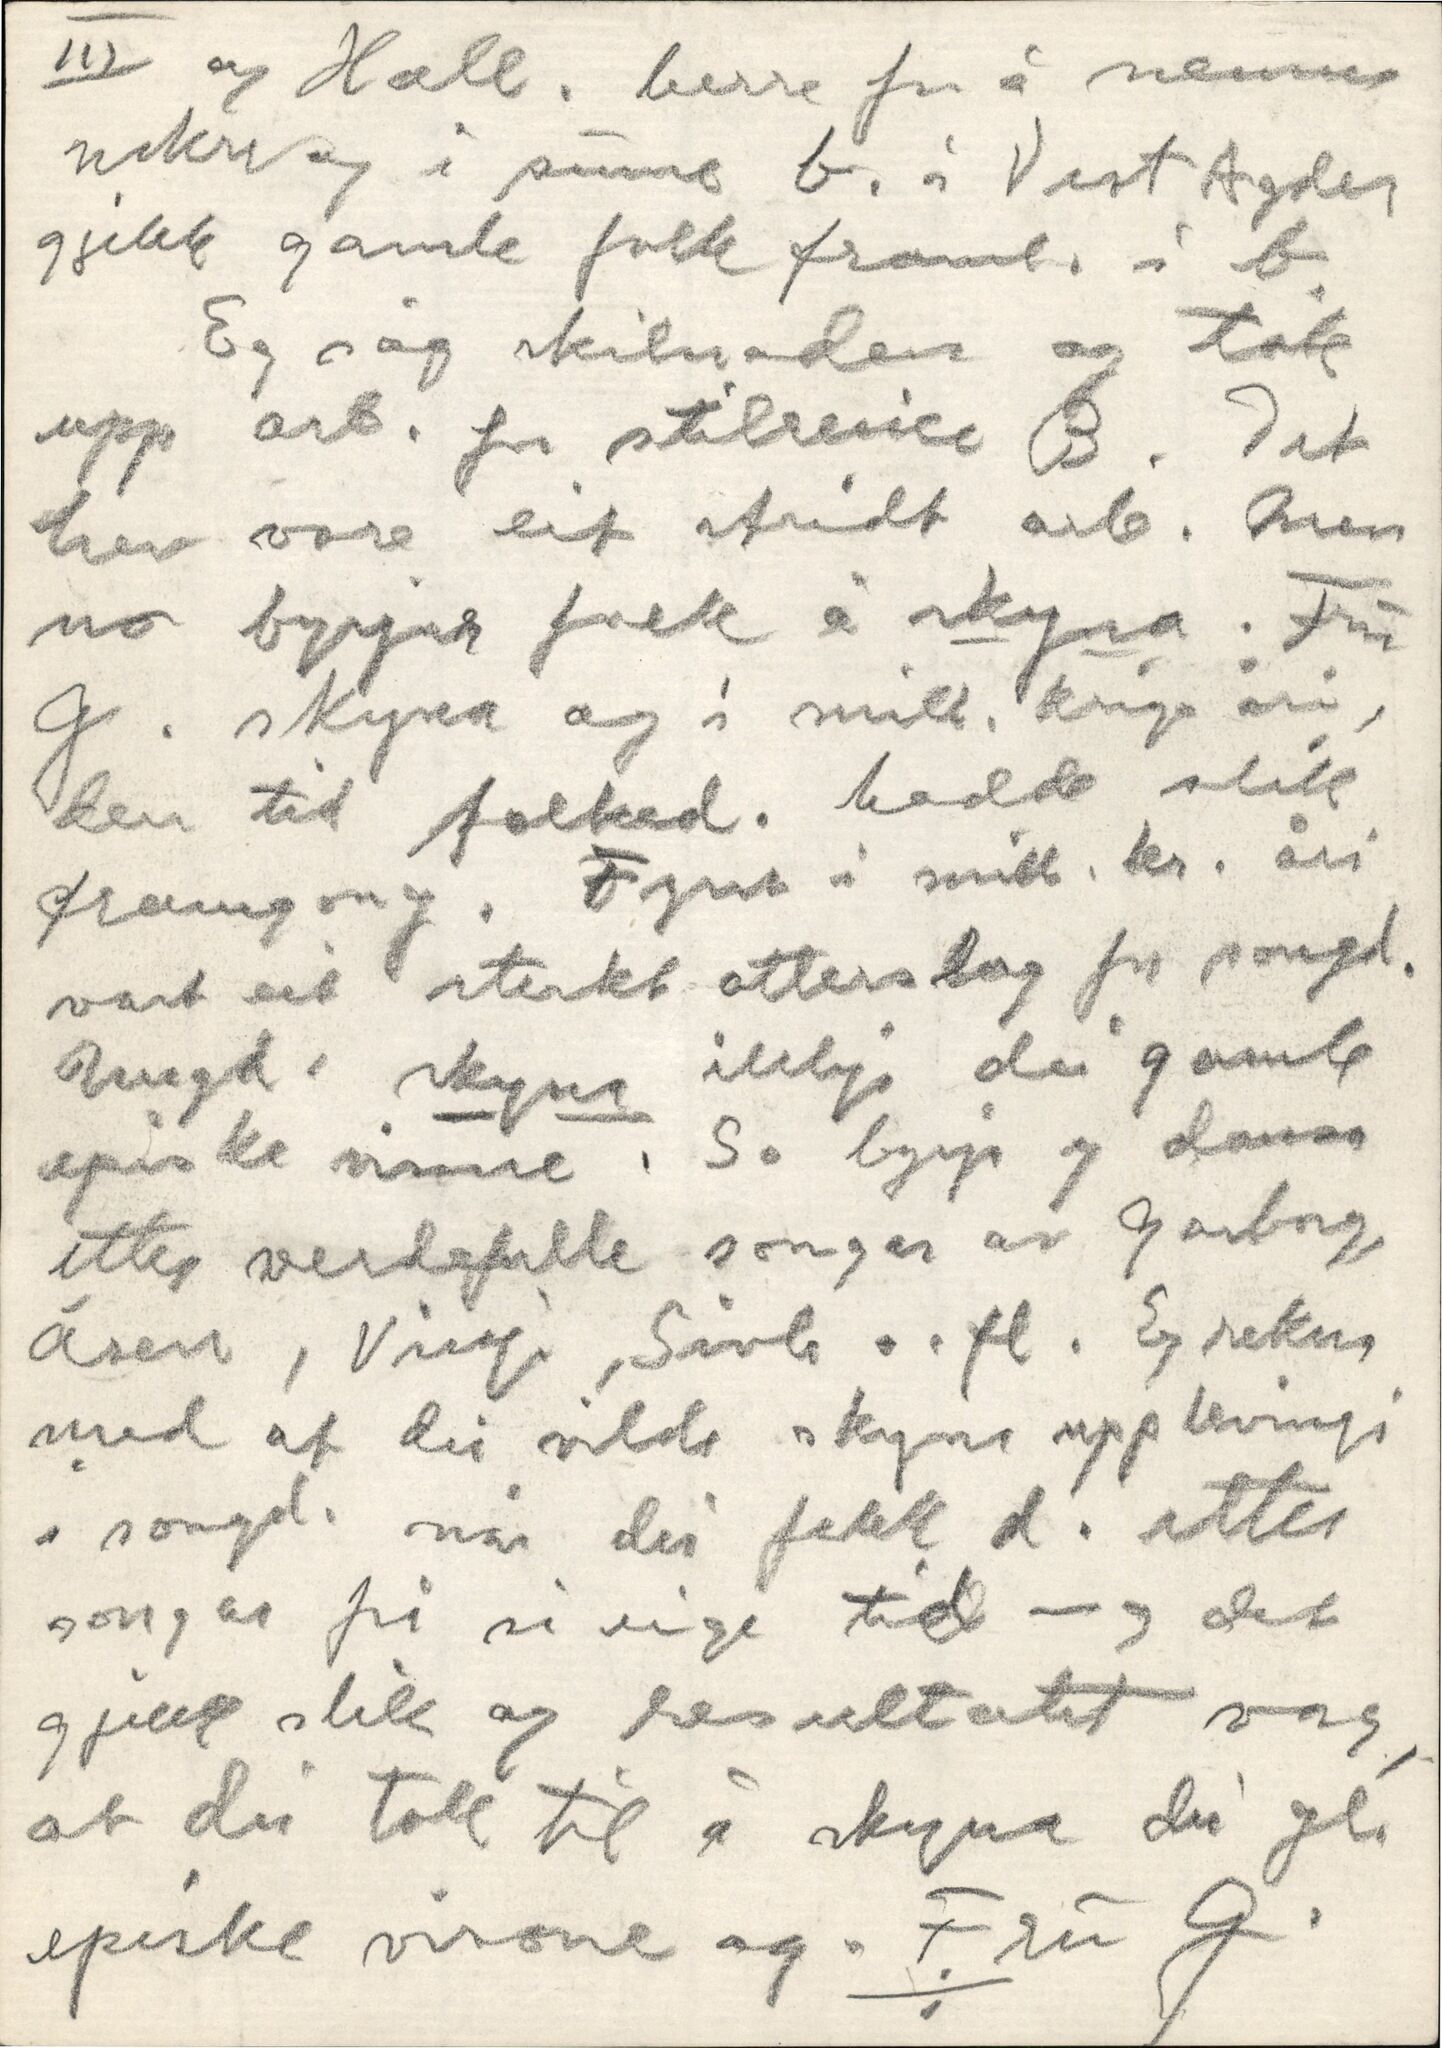 III og Hall. berre for å nemna
nokre og i sume b. i Vest Agder
gjekk gamle folk framb. i b.
Eg såg skilnaden og tok
upp arb. for stilreine B. Det
hev vore eit stridt arb. Men
no byrjar folk å skyna. Frú
G. skyna og i mill. krigs åri,
den tid folked. hadde slik
framgong. Fyrst i mill. kr. åri
vart eit sterkt atterslag for songd.
Ungd. skyna ikkje dei gamle
episke visone. So byrja eg dansa
etter verdefulle songar av Garborg,
Åsen, Vinje, Sivle o. fl. Eg rekna
med at dei vilde skyna upplevingi
i songd. når dei fekk d. etter
songar frå si eige tid — og det
gjekk slik og resultatet var,
at dei tok til å skyna dei gl.
episke visone og. Frú G.